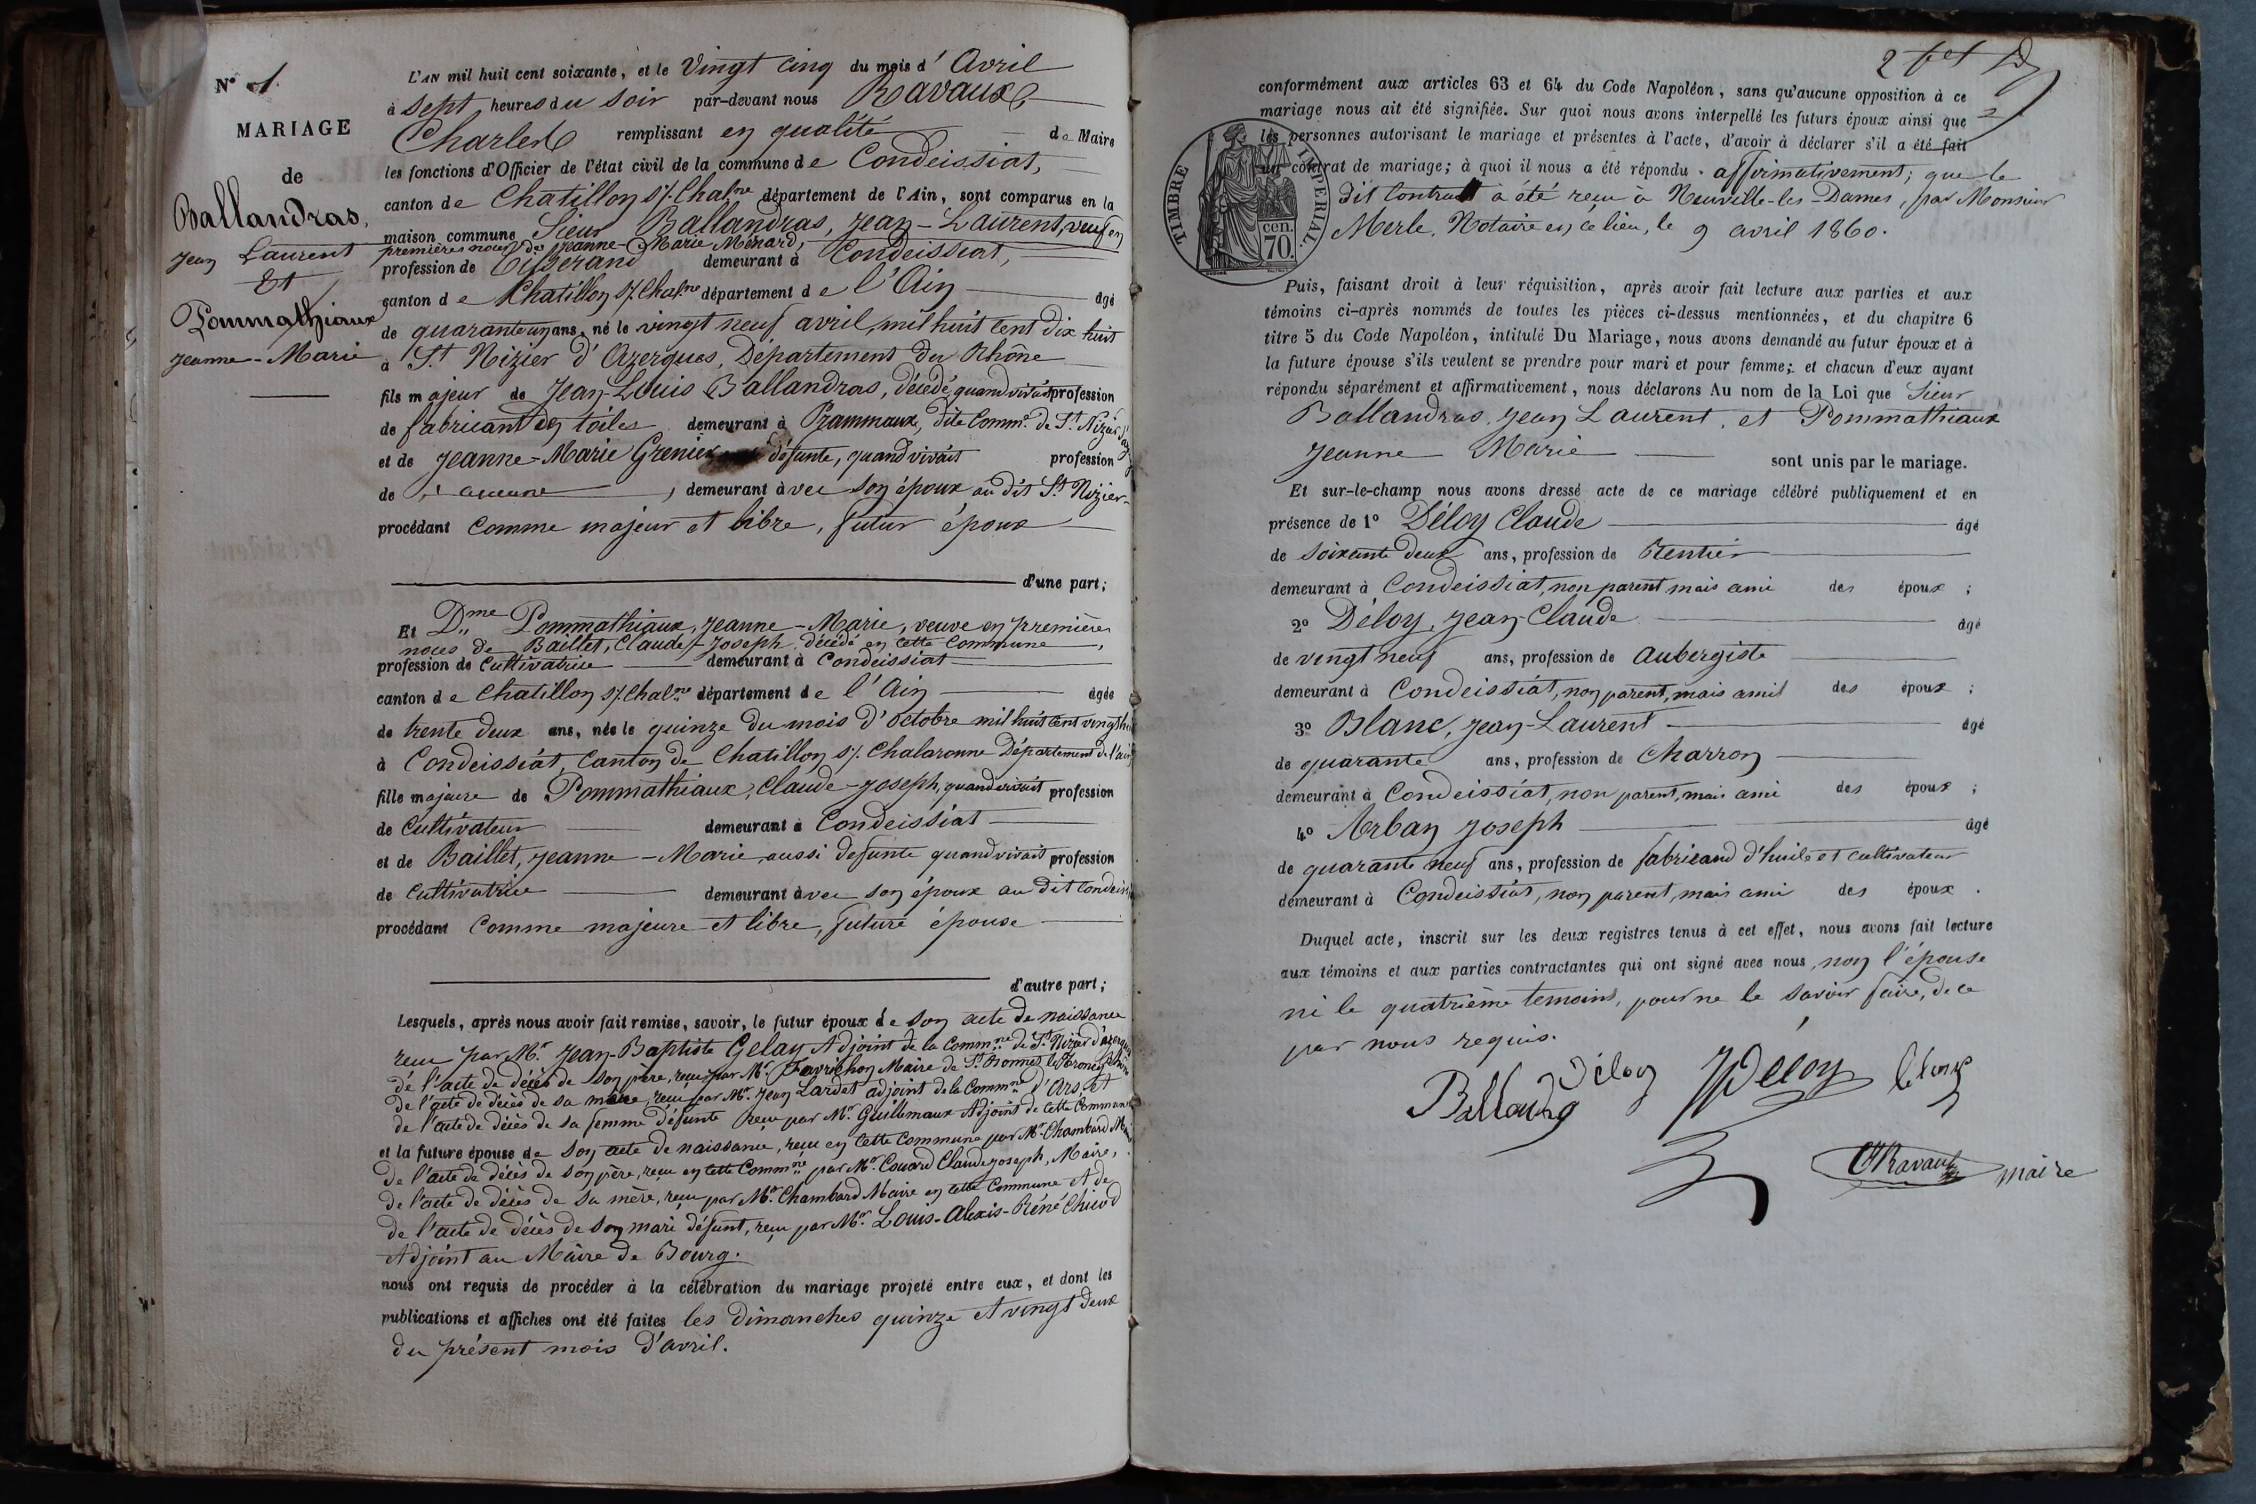 N° 1
MARIAGE
de
Ballandras,
Jean Laurent
Et
Pommathiaux
Jeanne-Marie
L'AN mil huit cent soixante, et le Vingt cinq du mois d'Avril
à sept heures du soir par-devant nous Ravaux
Charles remplissant en qualité de Maire
les fonctions d'Officier de l'état civil de la commune de Condeissiat,
canton de Chatillon s/. Chalne département de l'Ain, sont comparus en la
maison commune Sieur Ballandras, Jean-Laurent, veuf en
premières noces de Jeanne-Marie Ménard,
profession de Tisserand demeurant à Condeissiat,
canton de Chatillon s/. Chalne département de l'Ain âgé
de quarante un ans, né le vingt neuf avril mil huit cent dix huit
à St Nizier d'Azergues, Département du Rhône
fils majeur de Jean-Louis Ballandras, décédé quand vivait profession
de fabricant de toiles demeurant à Prammaux, dite Comme. de St. Nizier d'az
et de Jeanne-Marie Grenier défunte, quand vivait profession
de aucune, demeurant avec son époux au dit St. Nizier
procédant comme majeur et libre, futur époux
d'une part;
Et Dme Pommathiaux, Jeanne-Marie, veuve en premières
noces de Baillet, Claude-Joseph, décédé en cette commune,
profession de Cultivatrice demeurant à Condeissiat
canton de Chatillon s/. Chalne département de l'Ain âgée
de trente deux ans, née le quinze du mois d'octobre mil huit cent vingt
à Condeissiat, canton de Chatillon s/. Chalaronne Département de l'ain
fille majeure de Pommathiaux, Claude-Joseph, quand vivait profession
de Cultivateur demeurant à Condeissiat
et de Baillet, Jeanne-Marie aussi defunte quand vivait profession
de Cultivatrice demeurant avec son époux au dit Condeissi
procédant comme majeure et libre, future épouse
d'autre part;
Lesquels, après nous avoir fait remise, savoir, le futur époux de son acte de naissance
reçu par Mr. Jean-Baptiste Gelay Adjoint de la Commne de St. Nizier d'azergues
de l'acte de décès de son père, reçu par Mr. Favrichon Maire de St. Bonnet le Troncy
de l'acte de décès de sa mère, reçu par Mr. Jean Lardet adjoint de la Commne d'Ars, et
de l'acte de décès de sa femme défunte reçu par Mr Guillemaux Adjoint de cette Commune
et la future épouse de son acte de naissance, reçu en cette Commune par Mr. Chambard
de l'acte de décès de son père, reçu en cette Commne par Mr. Couard Claude Joseph, Maire,
de l'acte de décès de sa mère, reçu par Mr. Chambard Maire en cette Commune et de
de l'acte de décès de son mari défunt, reçu par Mr. Louis-Alexis-Réné Chicod
Adjoint au Maire de Bourg.
nous ont requis de procéder à la célébration du mariage projeté entre eux, et dont les
publications et affiches ont été faites les dimanches quinze et vingt deux
du présent mois d'avril.
2
conformément aux articles 63 et 64 du Code Napoléon, sans qu'aucune opposition à ce
mariage nous ait été signifiée. Sur quoi nous avons interpellé les futurs époux ainsi que
les personnes autorisant le mariage et présentes à l'acte, d'avoir à déclarer s'il a été fait
un contrat de mariage; à quoi il nous a été répondu affirmativement; que le
dit Contrat a été reçu à Neuville-les-Dames, par Monsieur
Merle, Notaire en ce lieu, le 9 avril 1860.
TIMBRE IMPERIAL.
cen.
70.
Puis, faisant droit à leur réquisition, après avoir fait lecture aux parties et aux
témoins ci-après nommés de toutes les pièces ci-dessus mentionnées, et du chapitre 6
titre 5 du Code Napoléon, intitulé Du Mariage, nous avons demandé au futur époux et à
la future épouse s'ils veulent se prendre pour mari et pour femme; et chacun d'eux ayant
répondu séparément et affirmativement, nous déclarons Au nom de la Loi que Sieur
Ballandras, Jean Laurent, et Pommathiaux
Jeanne Marie sont unis par le mariage.
Et sur-le-champ nous avons dressé acte de ce mariage célébré publiquement et en
présence de 1° Déloy Claude âgé
de soixante deux ans, profession de Rentier
demeurant à Condeissiat, non parent mais ami des époux;
2° Déloy, Jean-Claude âgé
de vingt neuf ans, profession de Aubergiste
demeurant à Condeissiat, non parent, mais ami des époux;
3° Blanc, Jean-Laurent âgé
de quarante ans, profession de Charron
demeurant à Condeissiat, non parent, mais ami des époux;
4° Arban Joseph âgé
de quarante neuf ans, profession de fabricand d'huile et cultivateur
demeurant à Condeissiat, non parent, mais ami des époux.
Duquel acte, inscrit sur les deux registres tenus à cet effet, nous avons fait lecture
aux témoins et aux parties contractantes qui ont signé avec nous, non l'épouse
ni le quatrième temoins, pour ne le savoir faire, de ce
par nous requis.
Ballandra Déloy JDéloy blanc
CHRavaux maire